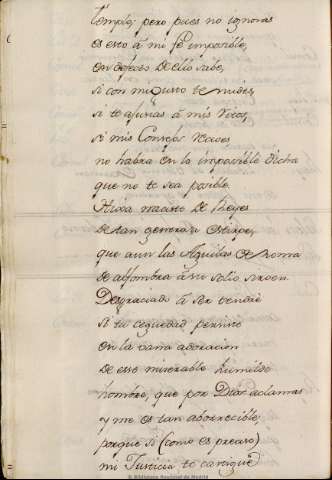 temple; pero pues no ignoras
es esto á mi fe imposible,
en defecto de ello sabe,
si con mi gusto te mides,
si te ajustas á mis Ritos,
si mis Consejos
no habra en lo imposible dicha
que no te sea posible
naciste de Reyes
de tan generosa estirpe,
que aun las Aguilas de Roma
de alfombra á su solio sirven
Desgraciado á ser vendré
si tu ceguedad permite
en la vana adoracion
de ese miserable humilde
hombre, que por Dios aclamas
y me es tan aborrecible;
porque si (como es preciso)
mi Justicia te castigue
© Biblioteca Nacional de Madrid